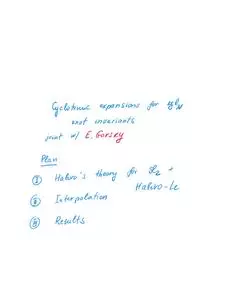 Cyclotomic expansions for gl_N
knot invariants
joint w/ E. Gorsky
Plan
① Habiro's theory for sl_2 +
Habiro-Le
② Interpolation
③ Results